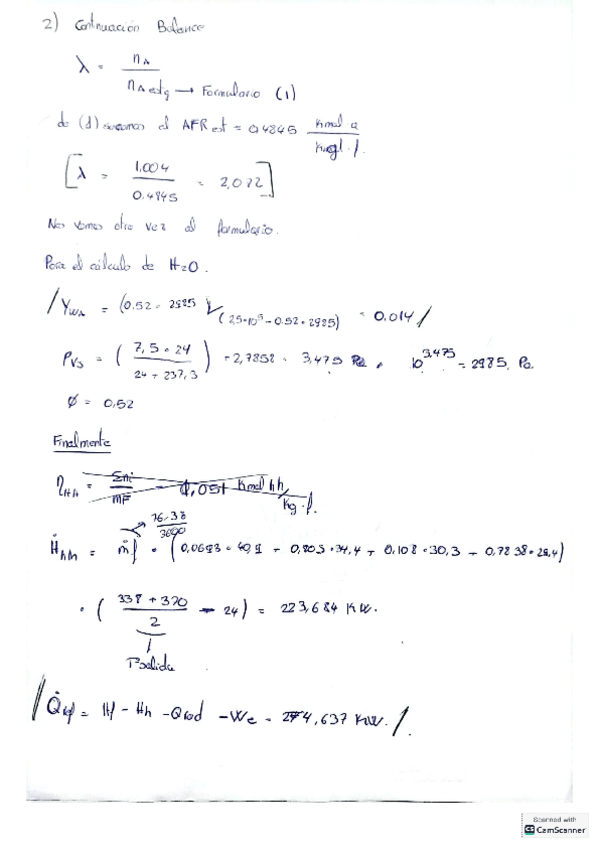 2) Continuación Balance
λ = nA / nA estq → Formulario (1)
de (d) sacamos el AFR est = 0,4845 Kmol a / Kg f.
[λ = 1,004 / 0,4845 = 2,072]
Nos vamos otra vez al formulario.
Para el cálculo de H2O.
/ YWA = (0,52 · 2985) / (2,5·10^5 - 0,52 · 2985) = 0.014 /
PVS = (7,5 · 24 / 24 + 237,3) + 2,7858 = 3,475 Pa, 10^3,475 = 2985 Pa.
Ø = 0,52
Finalmente
ηHh = Σni / mF = 1,051 Kmol hh / Kg. f.
76.38 / 3600
Ḣhh = ṁf · (0,0693 · 40,9 + 0,805 · 34,4 + 0,108 · 30,3 + 0,7238 · 29,4)
· (338 + 370 / 2 - 24) = 223,684 KW.
Tsalida
/ Q̇ref = Hf - Hh - Qrad - We = 274,637 KW. /.
Scanned with
CamScanner